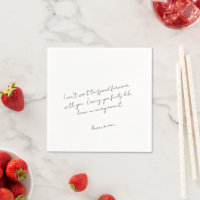 I can't wait to spend forever
with you. Loving you feels like
home in every moment.